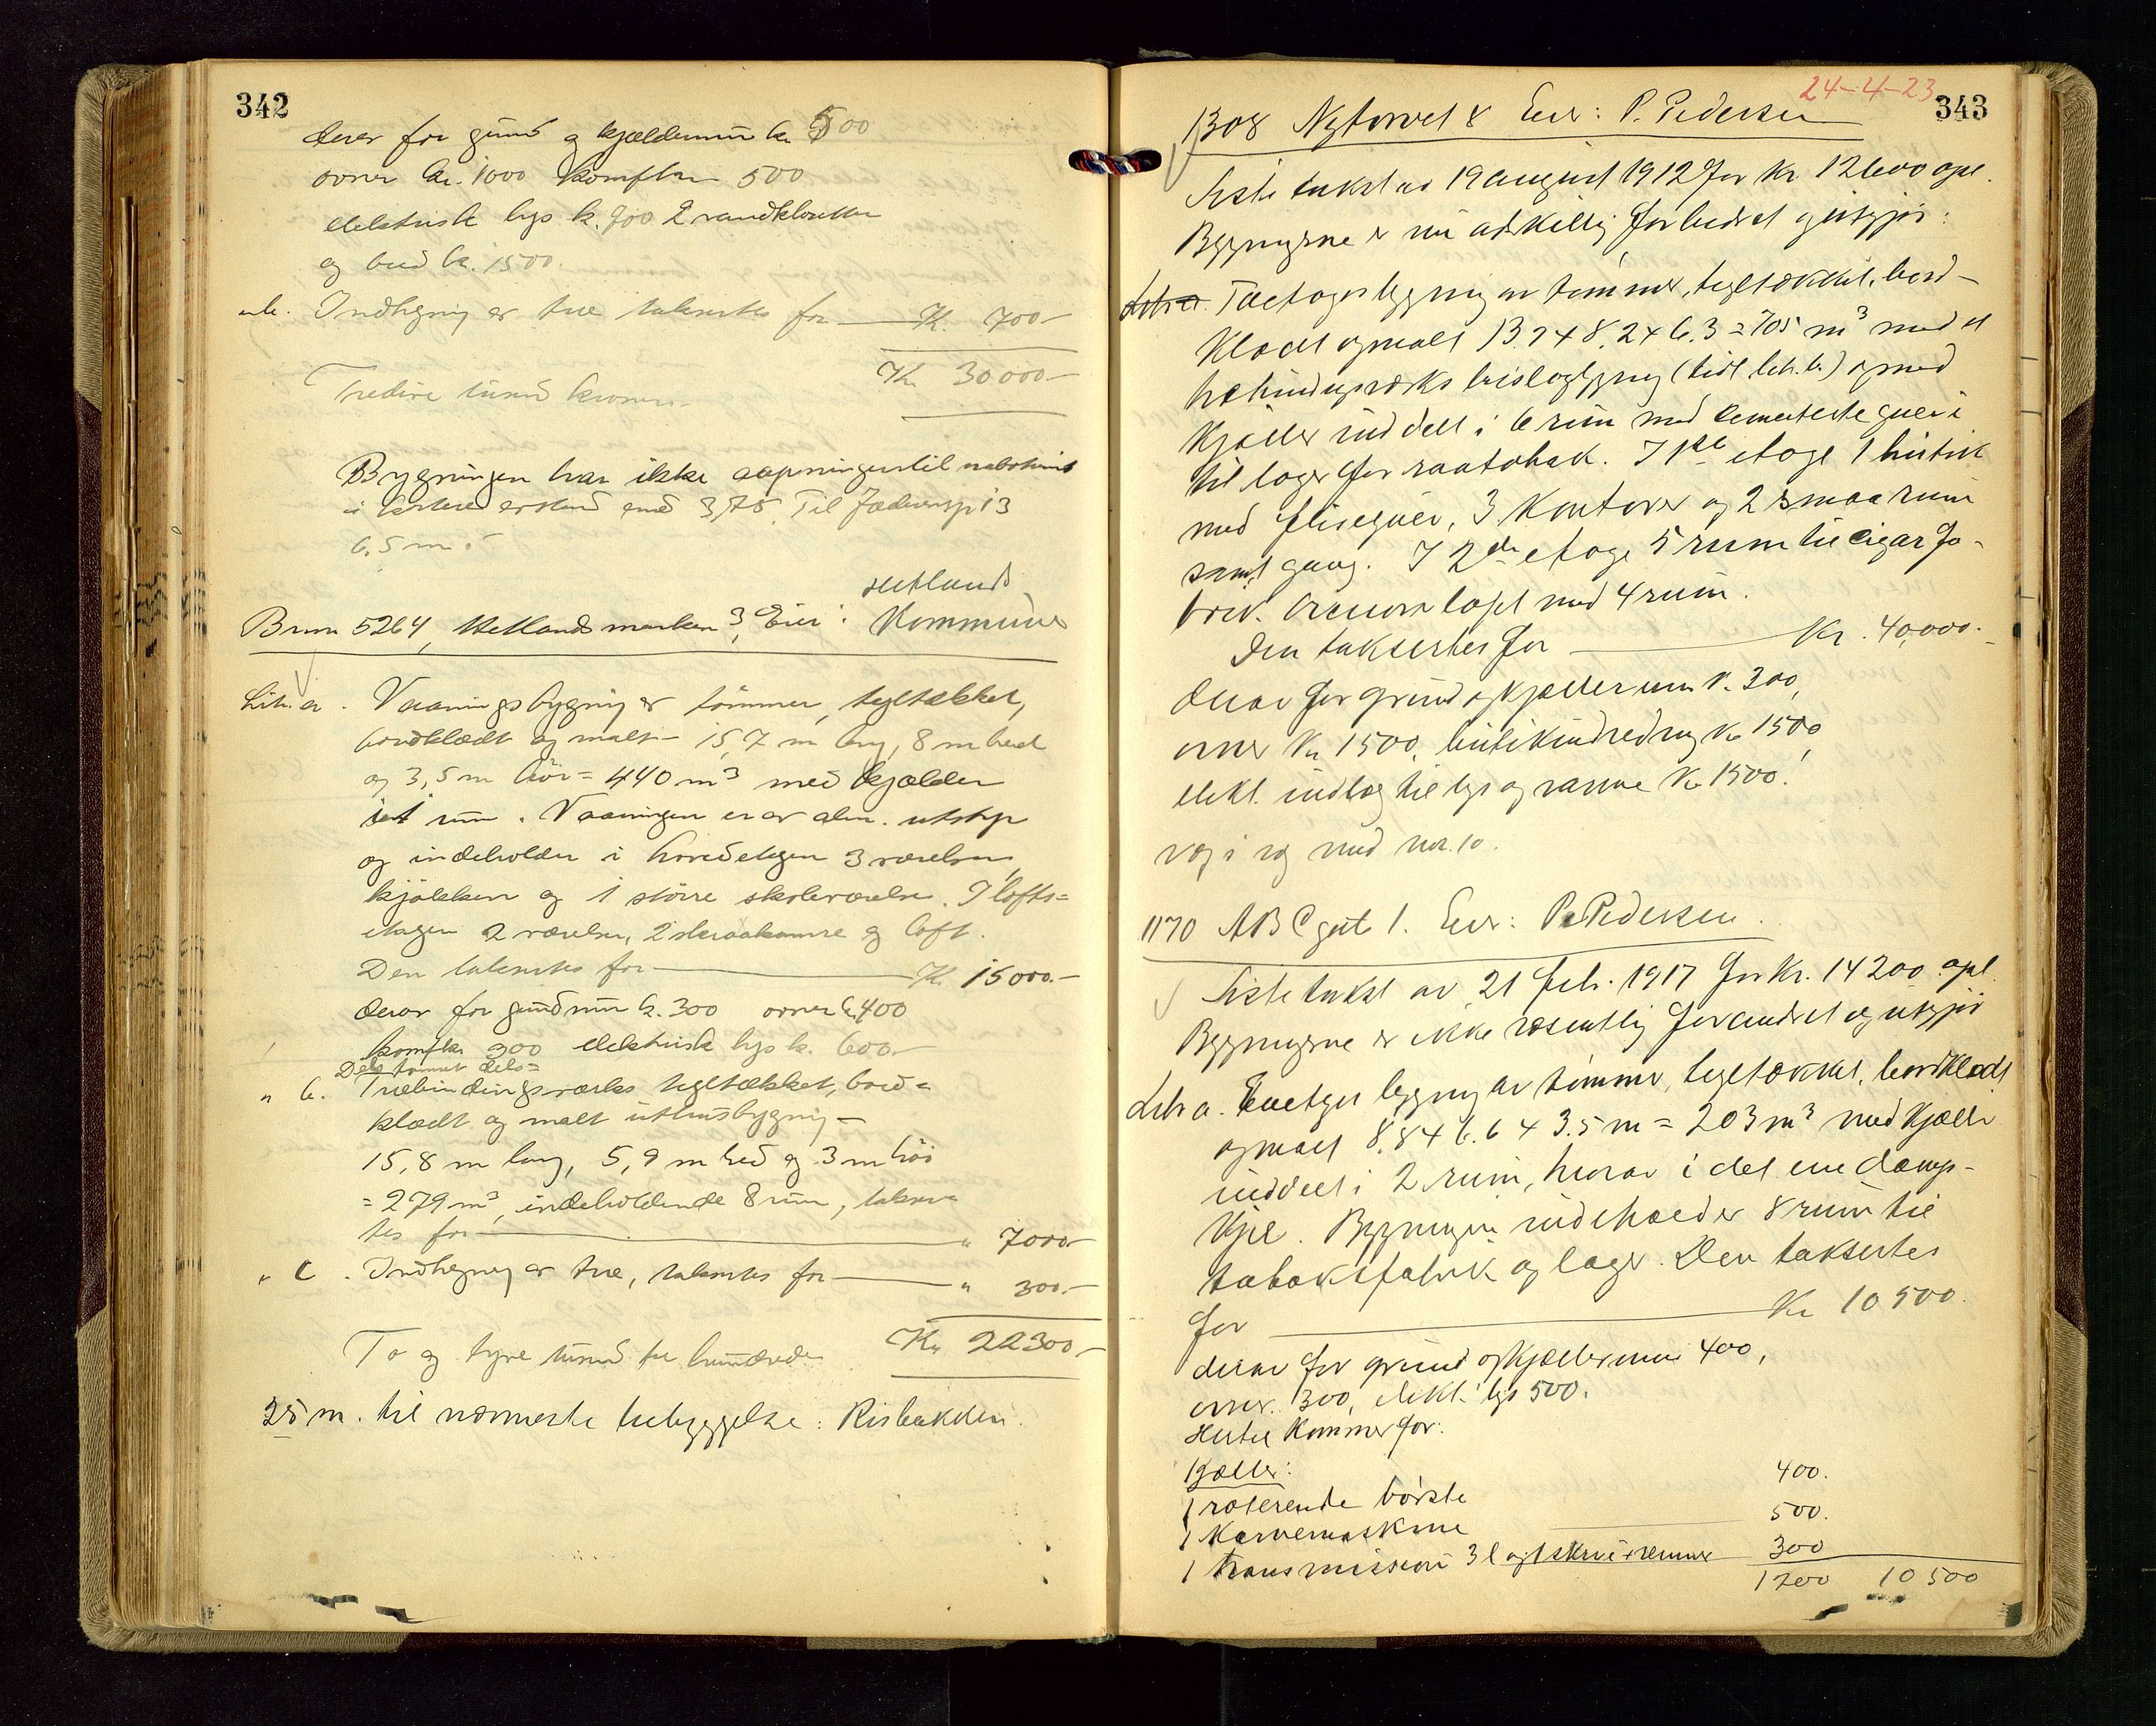 342
derav for grund og kjældermur kr. 500
ovner kr. 1000 komfhr 500
elektrisk lys kr. 900 2 vandklosetter
og bad kr. 1500.
" b. Indhegning av træ takseres for Kr. 700-
Kr. 30000-
Tredive tusind kroner-
Bygningen har ikke aapninger til nabohus
i kortere avstand end 3,75. Til Jædervej 13
6,5 m.
Hetland
Brnr 5264, Hetlandsmarken 3, Eier: Kommune
Litr. a. Vaaningsbygning av tømmer, tegltækket,
bordklædt og malt - 15,7 m lang, 8 m bred
og 3,5 m høi = 440 m³ med kjælder
i et rum. Vaaningen er av alm. utstyr
og indeholder i hovedetagen 3 værelser,
kjøkken og 1 større skoleværelse. I lofts=
etagen 2 værelser, 2 skraakamre og loft.
Den takseres for Kr. 15000.-
derav for grundmur k. 300 ovner k. 400
komfhr 300 elektrisk lys k. 600-
Dels tømmer dels=
" b. Træbindingsverks tegltækket, bord=
klædt og malt uthusbygning -
15,8 m lang, 5,9 m bred og 3 m høi
= 279 m³, indeholdende 8 rum, takse=
res for " 7000-
" c. Indhegning av træ, takseres for " 300.-
Kr. 22300-
To og tyve tusind tre hundrede
25 m. til nærmeste bebyggelse: Risbakken.
24-4-23
343
1308 Nytorvet 8 Eier: P. Pedersen
Siste takst av 19 august 1912 for Kr 12600 opl.
Bygningerne er nu adskillig forbedret og utgjør:
Litr a. Toetages bygning av tømmer, tegltækket, bord-
klædt og malt 13.7 x 8.2 x 6.3 = 705 m³ med et
træbindingsværks bislagbygning (tidl. litr. b.) og med
kjæller inddelt i 6 rum med cementerte gulv i
til lager for raatobak. I 1ste etage 1 butik
med flisegulv, 3 kontorer og 2 smaa rum
samt gang. I 2den etage 5 rum til cigarfa-
brik. Ovenover loft med 4 rum.
Den takseres for Kr. 40,000.-
derav for grund og kjællermur k. 300,
ovner Kr 1500, butikindredning Kr 1500,
elekt. indlæg til lys og varme Kr 1500.
væg i væg med nr. 10.
1170 ABC gate 1. Eier: P. Pedersen.
Siste takst av 21 feb. 1917 for Kr. 14200 opl.
Bygningerne er ikke væsentlig forandret og utgjør
Litr a. Enetages bygning av tømmer, tegltækket, bordklædt
og malt 8.8 x 6.6 x 3.5 m = 203 m³ med kjæller
inddelt i 2 rum, hvorav i det ene damp-
kjel. Bygningen indeholder 8 rum til
tobaksfabrik og lager. Den takseres
for Kr 10500.
derav for grund og kjællermur 400,
ovner 300, elekt. lys 500.
Hertil kommer for:
Kjæller:
1 roterende børste 400.
1 Karvemaskine 500.
1 transmission 3 l. og 1 skrue + remmer 300
1200 10500